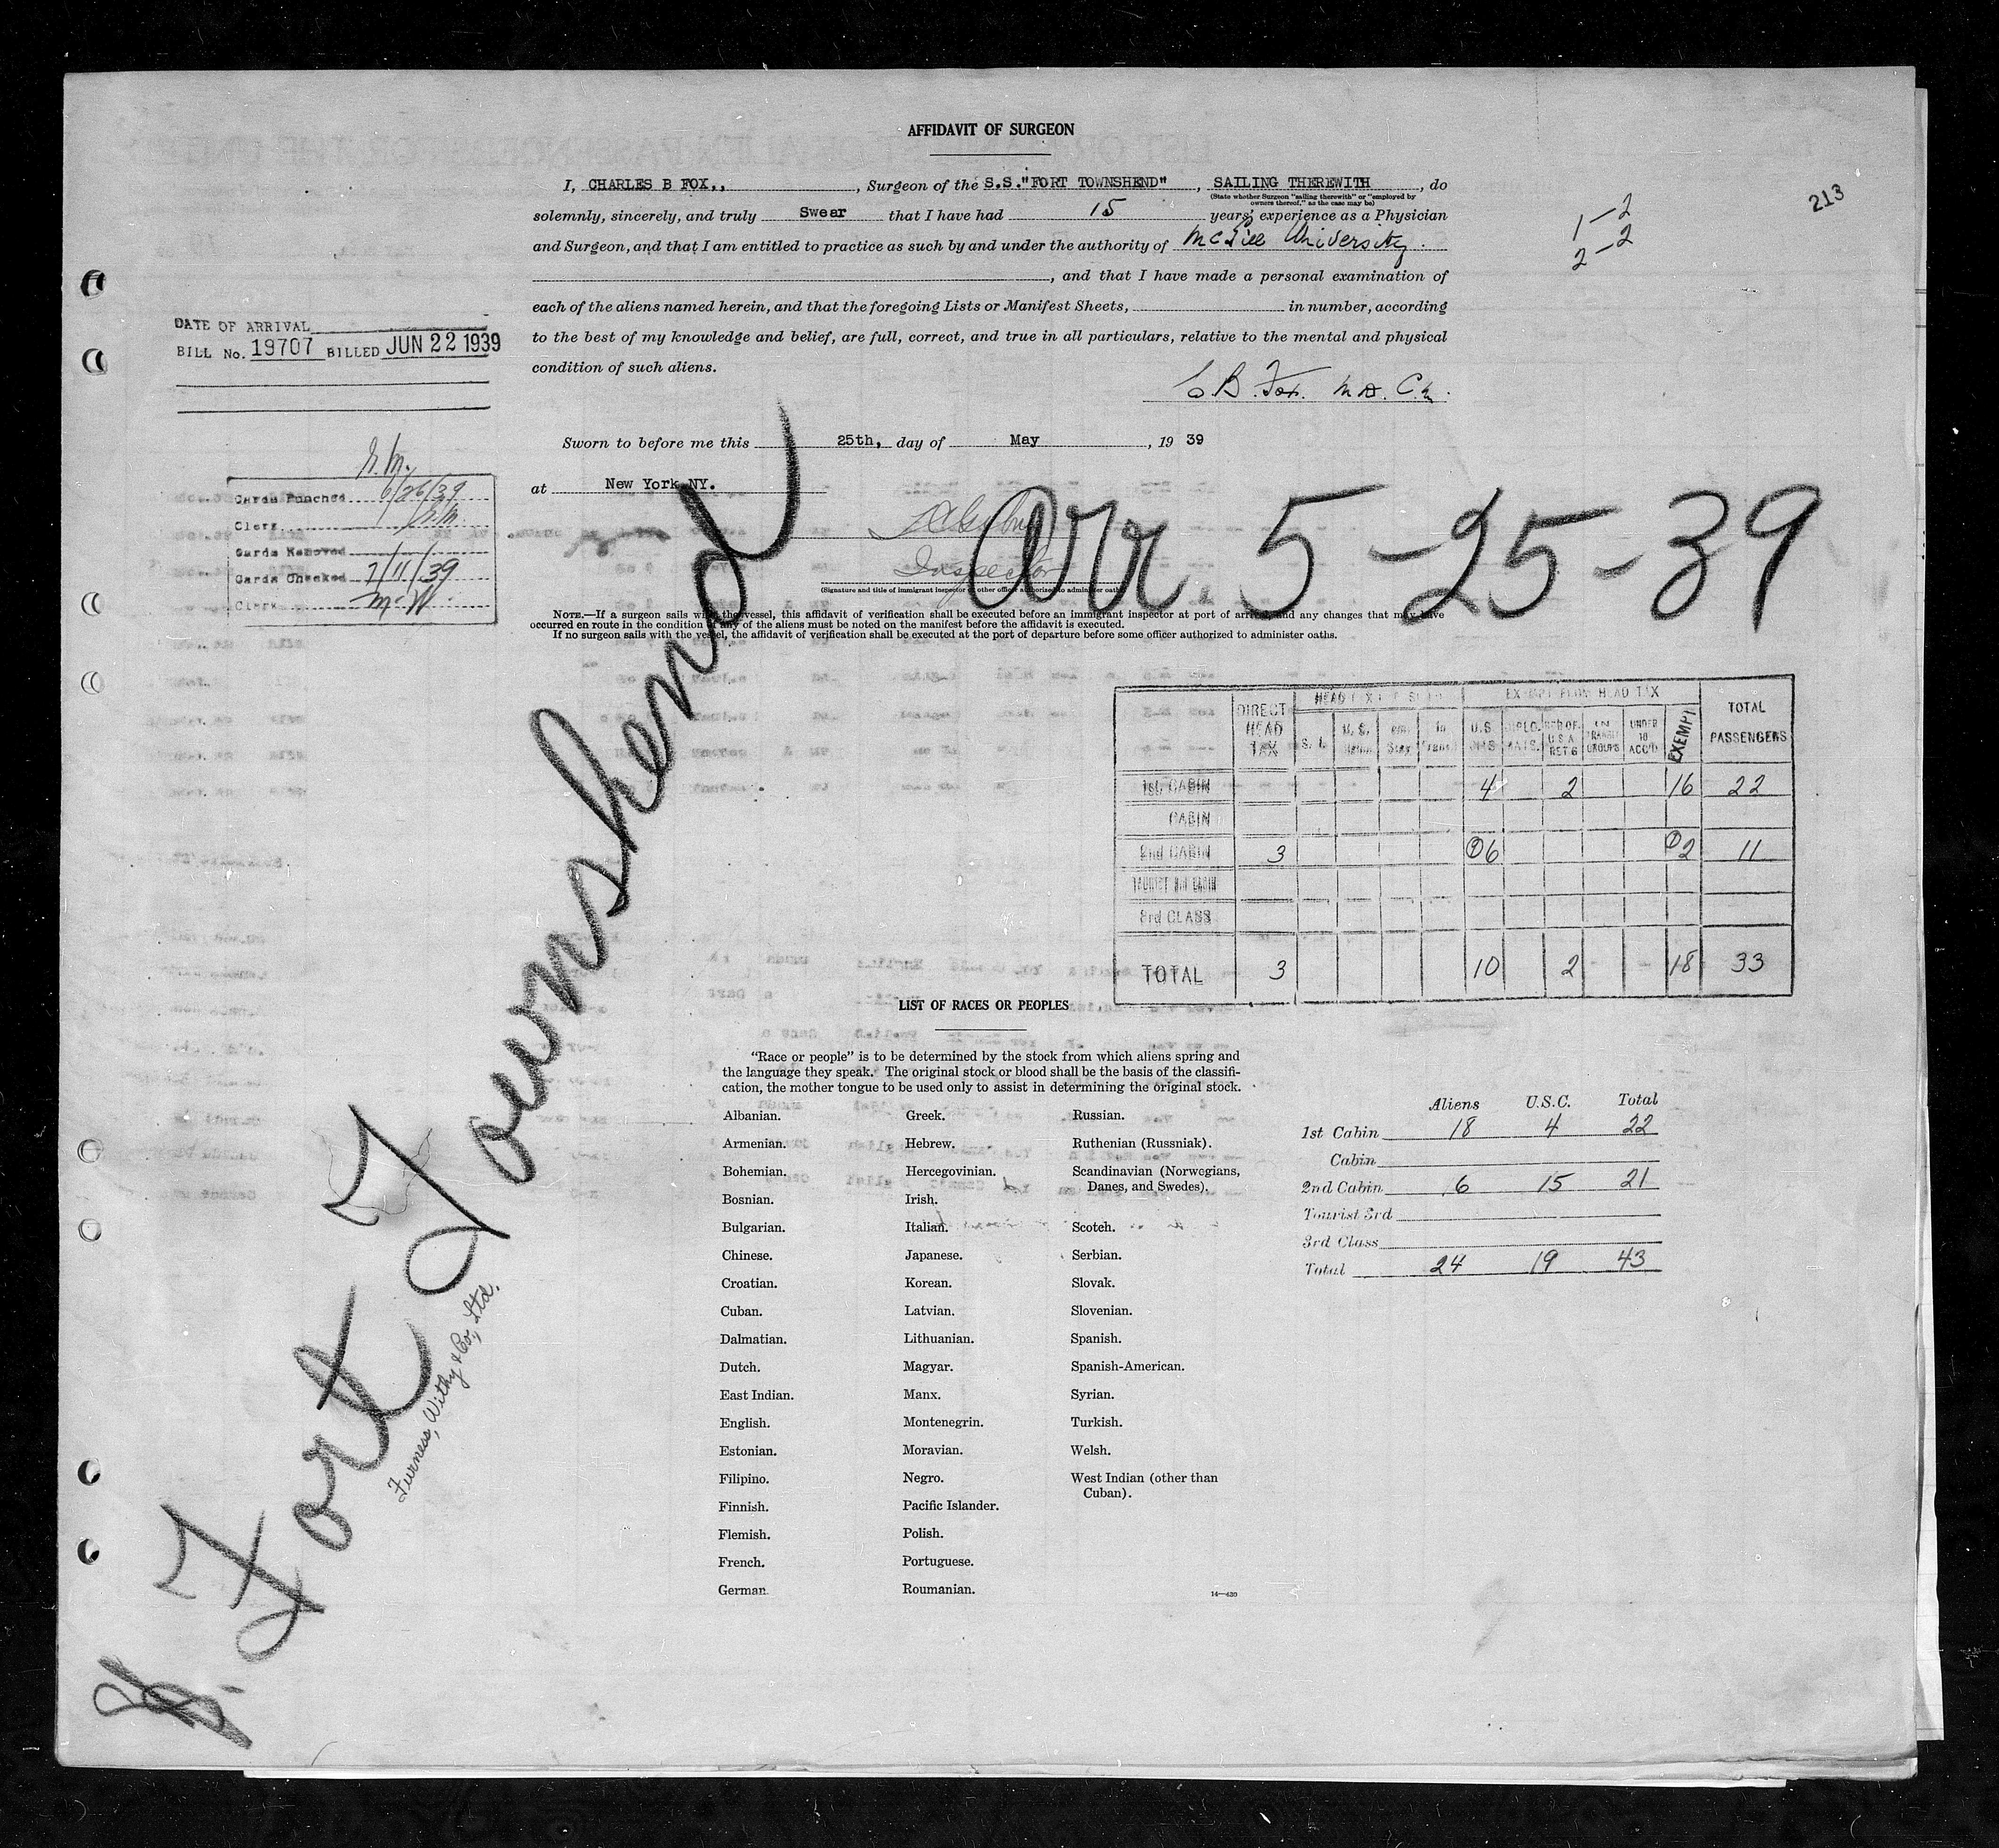 AFFIDAVIT OF SURGEON
I, CHARLES B FOX,, , Surgeon of the S.S."FORT TOWNSHEND" , SAILING THEREWITH , do
(State whether Surgeon "sailing therewith" or "employed by
owners thereof," as the case may be)
solemnly, sincerely, and truly Swear that I have had 15 years' experience as a Physician
and Surgeon, and that I am entitled to practice as such by and under the authority of McGill University.
, and that I have made a personal examination of
each of the aliens named herein, and that the foregoing Lists or Manifest Sheets, in number, according
to the best of my knowledge and belief, are full, correct, and true in all particulars, relative to the mental and physical
condition of such aliens.
C B. Fox. M.D. C.M.
213
1-2
2-2
DATE OF ARRIVAL
BILL No. 19707 BILLED JUN 22 1939
Sworn to before me this 25th, day of May , 19 39
at New York NY.
Inspector
(Signature and title of immigrant inspector or other officer authorized to administer oath)
Arr 5-25-39
Cards Punched 6/26/39
Clerk
Cards Removed
Cards Checked 7/11/39
Clerk McW.
NOTE.—If a surgeon sails with the vessel, this affidavit of verification shall be executed before an immigrant inspector at port of arrival and any changes that may have
occurred en route in the condition of any of the aliens must be noted on the manifest before the affidavit is executed.
If no surgeon sails with the vessel, the affidavit of verification shall be executed at the port of departure before some officer authorized to administer oaths.
Fort Townshend
Furness, Withy & Co., Ltd.
EXEMPT FROM HEAD TAX
DIRECT HEAD TAX U.S. UNDER 16 ACC'D EXEMPT TOTAL PASSENGERS
1st CABIN 4 2 16 22
CABIN
2nd CABIN 3 6 2 11
TOURIST 3rd CABIN
3rd CLASS
TOTAL 3 10 2 - - 18 33
LIST OF RACES OR PEOPLES
"Race or people" is to be determined by the stock from which aliens spring and
the language they speak. The original stock or blood shall be the basis of the classifi-
cation, the mother tongue to be used only to assist in determining the original stock.
Albanian.
Armenian.
Bohemian.
Bosnian.
Bulgarian.
Chinese.
Croatian.
Cuban.
Dalmatian.
Dutch.
East Indian.
English.
Estonian.
Filipino.
Finnish.
Flemish.
French.
German.
Greek.
Hebrew.
Hercegovinian.
Irish.
Italian.
Japanese.
Korean.
Latvian.
Lithuanian.
Magyar.
Manx.
Montenegrin.
Moravian.
Negro.
Pacific Islander.
Polish.
Portuguese.
Roumanian.
Russian.
Ruthenian (Russniak).
Scandinavian (Norwegians,
Danes, and Swedes).
Scotch.
Serbian.
Slovak.
Slovenian.
Spanish.
Spanish-American.
Syrian.
Turkish.
Welsh.
West Indian (other than
Cuban).
14—439
Aliens U.S.C. Total
1st Cabin 18 4 22
Cabin
2nd Cabin 6 15 21
Tourist 3rd
3rd Class
Total 24 19 43